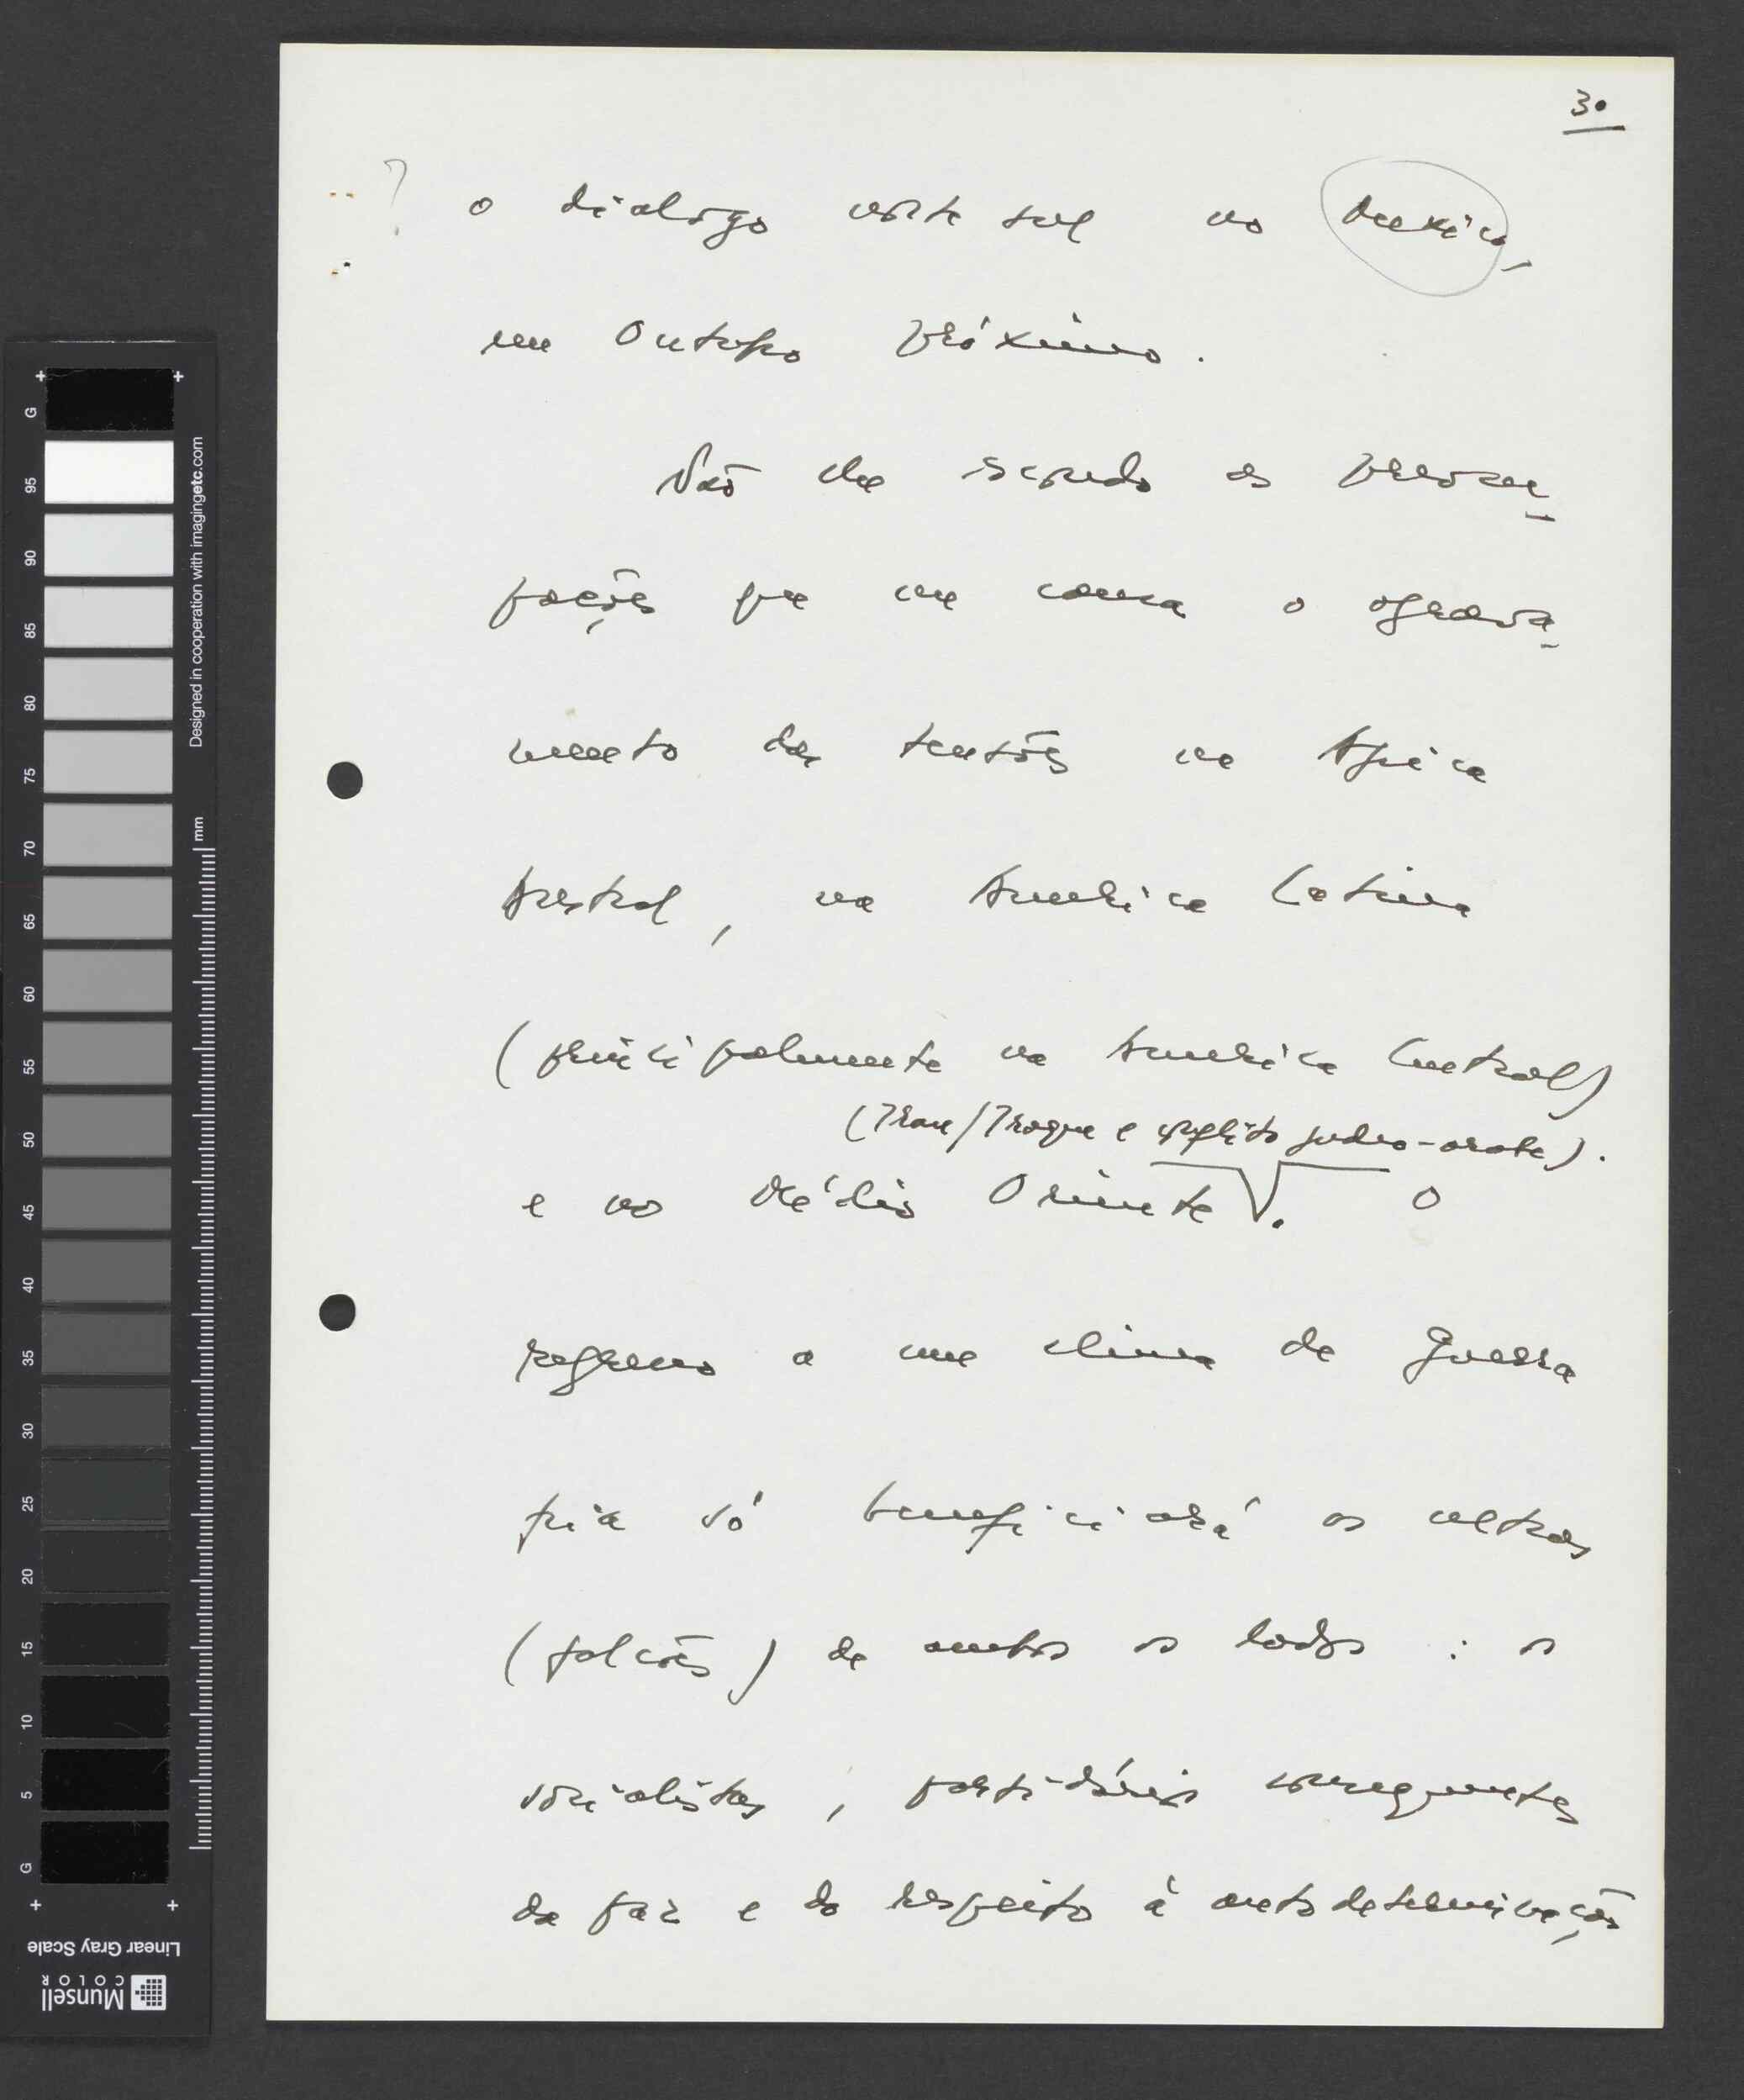 30
? o dialogo norte sul no México,
em Outubro próximo.
Não lhe escondo as preocu-
pações que me causa o agrava-
mento das tensões na Africa
Austral, na America Latina
(principalmente na America Central)
(Irão/Iraque e conflito judeo-arabe).
e no Médio Oriente. O
regresso a um clima de guerra
fria só beneficiará os ultras
(falcões) de ambos os lados: os
socialistas, partidários consequentes
da paz e do respeito à autodeterminação
G
95
90
85
80
75
70
65
60
55
50
45
40
35
30
25
20
15
10
5
G
Designed in cooperation with imagingetc.com
mm
Linear Gray Scale
Munsell
COLOR